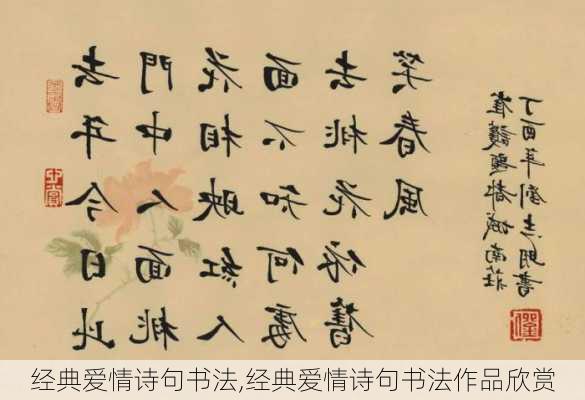 去年今日此
門中人面桃
花相映紅人
面不知何處
去桃花依舊
笑春風
崔護題都城南莊
丁酉年劉志明書
经典爱情诗句书法,经典爱情诗句书法作品欣赏